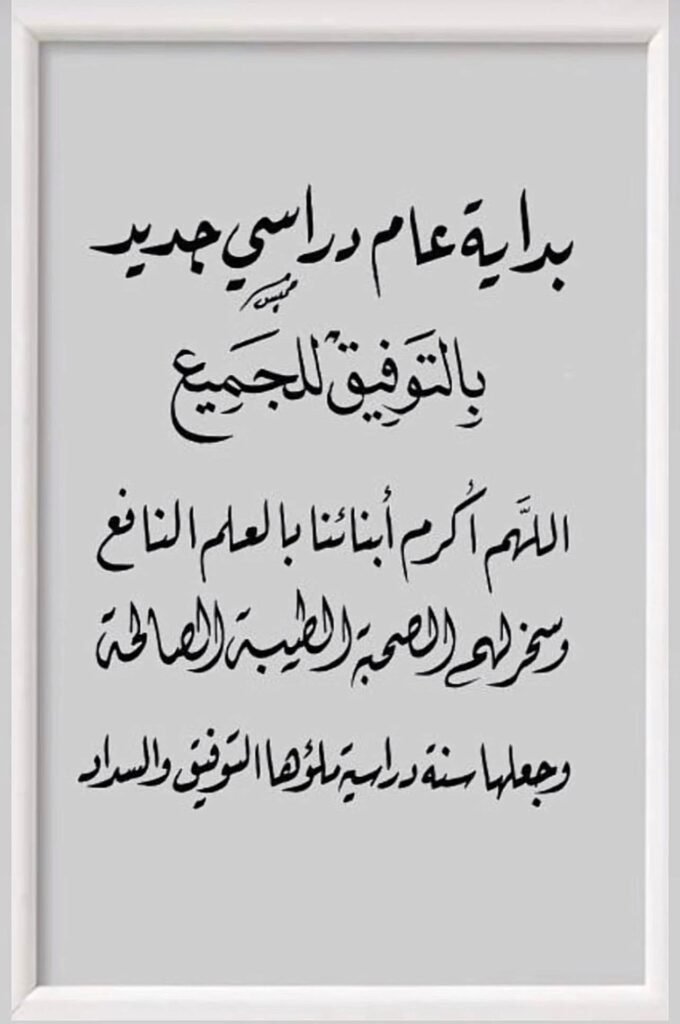 بداية عام دراسي جديد
بِالتَوفِيق للجَمِيع
اللهَّم أُكرم أبنائنا بالعلم النافع
وسخر لهم الصحبة الطيبة الصالحة
وجعلها سنة دراسية ملؤها التوفيق والسداد